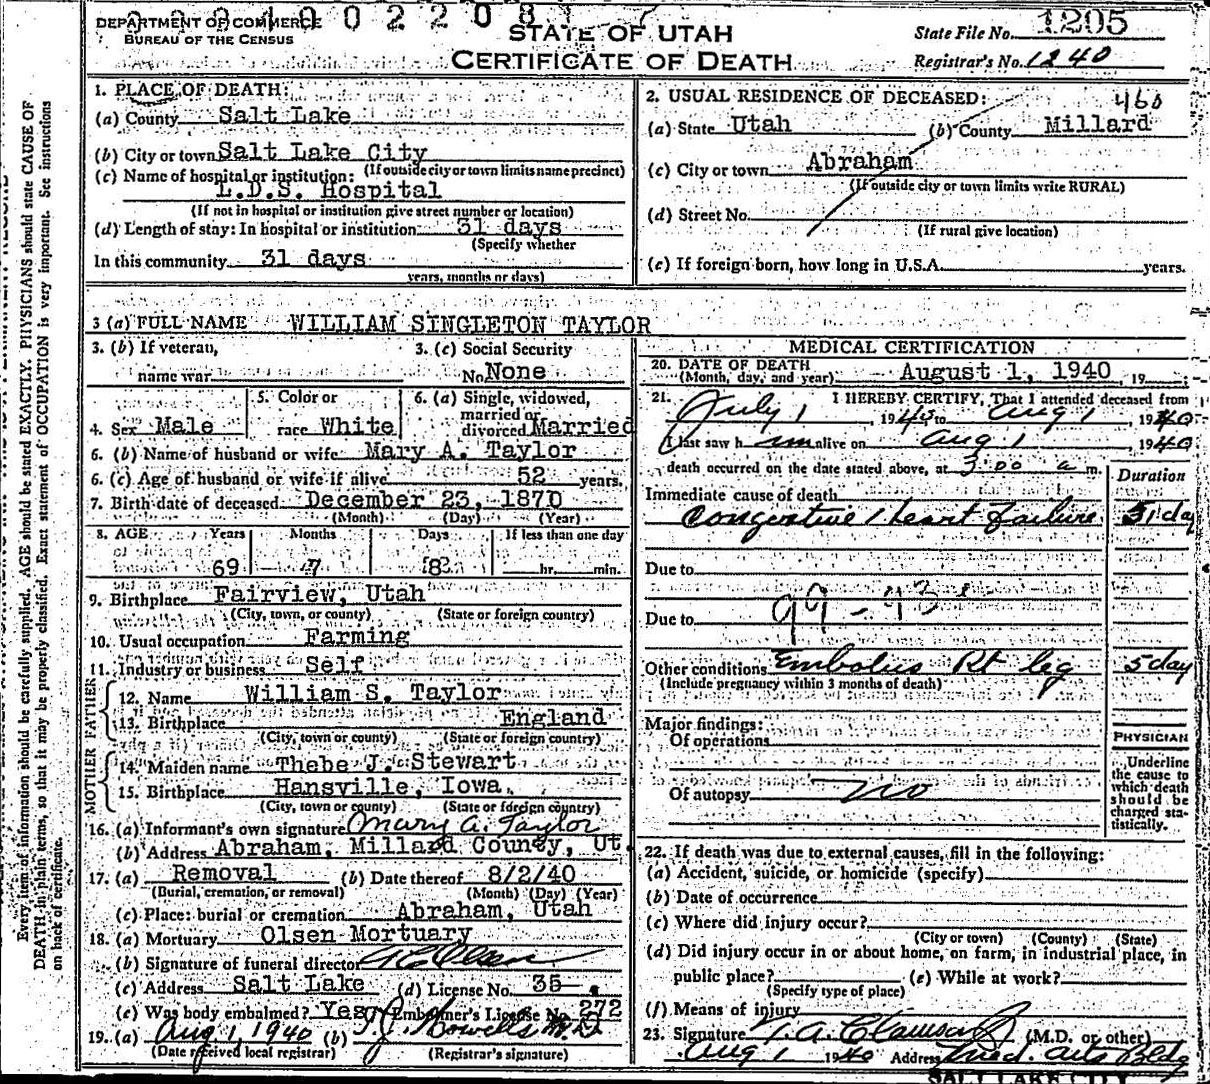 DEPARTMENT OF COMMERCE
BUREAU OF THE CENSUS
STATE OF UTAH
CERTIFICATE OF DEATH
State File No. 1205
Registrar's No. 1240
Every item of information should be carefully supplied. AGE should be stated EXACTLY. PHYSICIANS should state CAUSE OF
DEATH in plain terms, so that it may be properly classified. Exact statement of OCCUPATION is very important. See instructions
on back of certificate.
1. PLACE OF DEATH:
(a) County Salt Lake
(b) City or town Salt Lake City
(If outside city or town limits name precinct)
(c) Name of hospital or institution:
L.D.S. Hospital
(If not in hospital or institution give street number or location)
(d) Length of stay: In hospital or institution 31 days
(Specify whether
In this community 31 days
years, months or days)
2. USUAL RESIDENCE OF DECEASED: 460
(a) State Utah (b) County Millard
(c) City or town Abraham
(If outside city or town limits write RURAL)
(d) Street No.
(If rural give location)
(e) If foreign born, how long in U.S.A. years.
3 (a) FULL NAME WILLIAM SINGLETON TAYLOR
3. (b) If veteran,
name war
3. (c) Social Security
No. None
4. Sex Male
5. Color or
race White
6. (a) Single, widowed,
married or
divorced Married
6. (b) Name of husband or wife Mary A. Taylor
6. (c) Age of husband or wife if alive 52 years.
7. Birth date of deceased December 23, 1870
(Month) (Day) (Year)
8. AGE Years Months Days If less than one day
69 7 8 hr. min.
9. Birthplace Fairview, Utah
(City, town, or county) (State or foreign country)
10. Usual occupation Farming
11. Industry or business Self
FATHER
12. Name William S. Taylor
13. Birthplace England
(City, town or county) (State or foreign country)
MOTHER
14. Maiden name Thebe J. Stewart
15. Birthplace Hansville, Iowa.
(City, town or county) (State or foreign country)
16. (a) Informant's own signature Mary A. Taylor
(b) Address Abraham, Millard County, Ut.
17. (a) Removal (b) Date thereof 8/2/40
(Burial, cremation, or removal) (Month) (Day) (Year)
(c) Place: burial or cremation Abraham, Utah
18. (a) Mortuary Olsen Mortuary
(b) Signature of funeral director Olsen
(c) Address Salt Lake (d) License No. 35
(e) Was body embalmed? Yes Embalmer's License No. 272
19. (a) Aug 1, 1940 (b) T. J. Howells M.D.
(Date received local registrar) (Registrar's signature)
MEDICAL CERTIFICATION
20. DATE OF DEATH
(Month, day, and year) August 1, 1940, 19
21. I HEREBY CERTIFY, That I attended deceased from
July 1 1940 to Aug 1, 1940
I last saw him alive on Aug 1 1940
death occurred on the date stated above, at 3:00 a m.
Duration
Immediate cause of death
Congestive heart failure 31 day
Due to
Due to
Other conditions Embolus Rt leg 5 day
(Include pregnancy within 3 months of death)
Major findings:
Of operations
PHYSICIAN
Of autopsy no
Underline
the cause to
which death
should be
charged sta-
tistically.
22. If death was due to external causes, fill in the following:
(a) Accident, suicide, or homicide (specify)
(b) Date of occurrence
(c) Where did injury occur?
(City or town) (County) (State)
(d) Did injury occur in or about home, on farm, in industrial place, in
public place? (e) While at work?
(Specify type of place)
(f) Means of injury
23. Signature T. A. Clawson Jr (M.D. or other)
Aug 1 1940 Address Med. Arts Bldg
SALT LAKE CITY